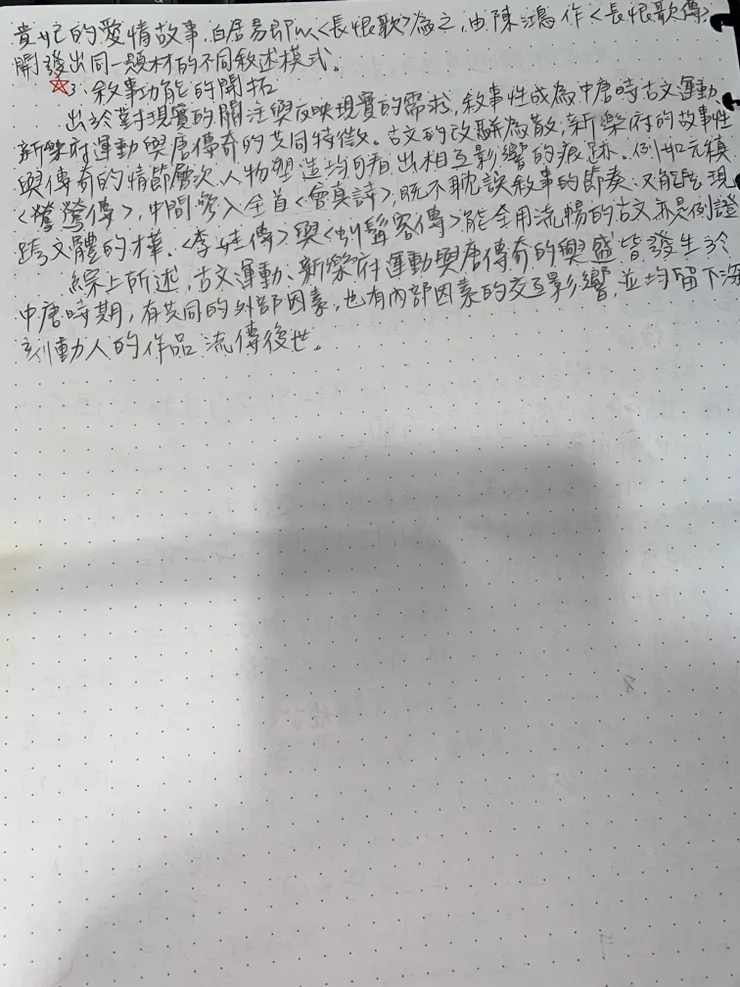 貴妃的愛情故事,白居易即以<長恨歌>為之,由陳鴻作<長恨歌傳>
開發出同一題材的不同敘述模式。
☆3. 敘事功能的開拓
出於對現實的關注與反映現實的需求,敘事性成為中唐時古文運動、
新樂府運動與唐傳奇的共同特徵。古文的改駢為散,新樂府的故事性
與傳奇的情節層次、人物塑造均可看出相互影響的痕跡。例如元稹
<鶯鶯傳>,中間穿入全首<會真詩>,既不耽誤敘事的節奏,又能展現
跨文體的才華。<李娃傳>與<虬髯客傳>能全用流暢的古文亦是例證
綜上所述,古文運動、新樂府運動與唐傳奇的興盛皆發生於
中唐時期,有共同的外部因素,也有內部因素的交互影響,並均留下深
刻動人的作品流傳後世。